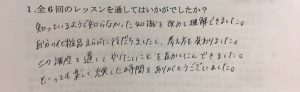 1.全6回のレッスンを通してはいかがでしたか?
知っているようで知らなかった知識を改めて理解できました。
自分の化粧品えらびにも役だちましたし、考え方も変わりました。
この講座を通してやりたいことを再かくにんできました。
とっても楽しく充実した時間をありがとうございました。